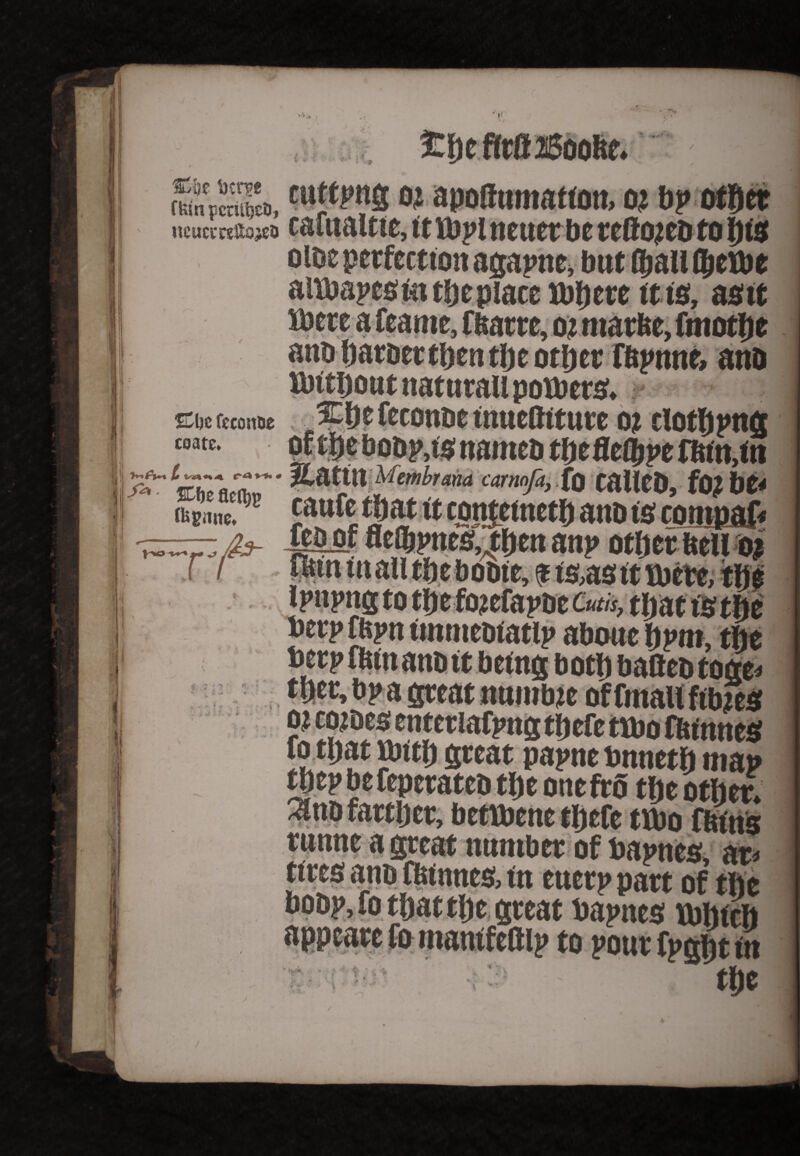 The first Booke.
The verye
skin perished,
neuer restored
cuttyng or apostumation, or by other
casualtie, it wyl neuer be restored to his
olde perfection agayne, but shall shewe
alwayes in the place where it is, as it
were a seame, skarre, or marke, smothe
and harder then the other skynne, and
without naturall powers.
The seconde
coate.
The fleshy
skynne.
The seconde inuestiture or clothyng
of the body, is named the fleshye skin, in
Latin Membrana carnosa, so called, for be-
cause that it conteineth and is compas-
sed of fleshynes, then any other kell or
skin in all the bodie, & is, as it were, the
lynyng to the foresayde Cutis, that is the
very skyn immediatly aboue hym, the
very skin and it being both basted toge-
ther, by a great numbre of small fibres
or cordes enterlasyng these two skinnes
so that with great payne vnneth may
they be seperated the one frõ the other.
And farther, betwene these two skins
runne a great number of vaynes, ar-
tires and skinnes, in euery part of the
body, so that the great vaynes which
appeare so manifestly to your syght in
the